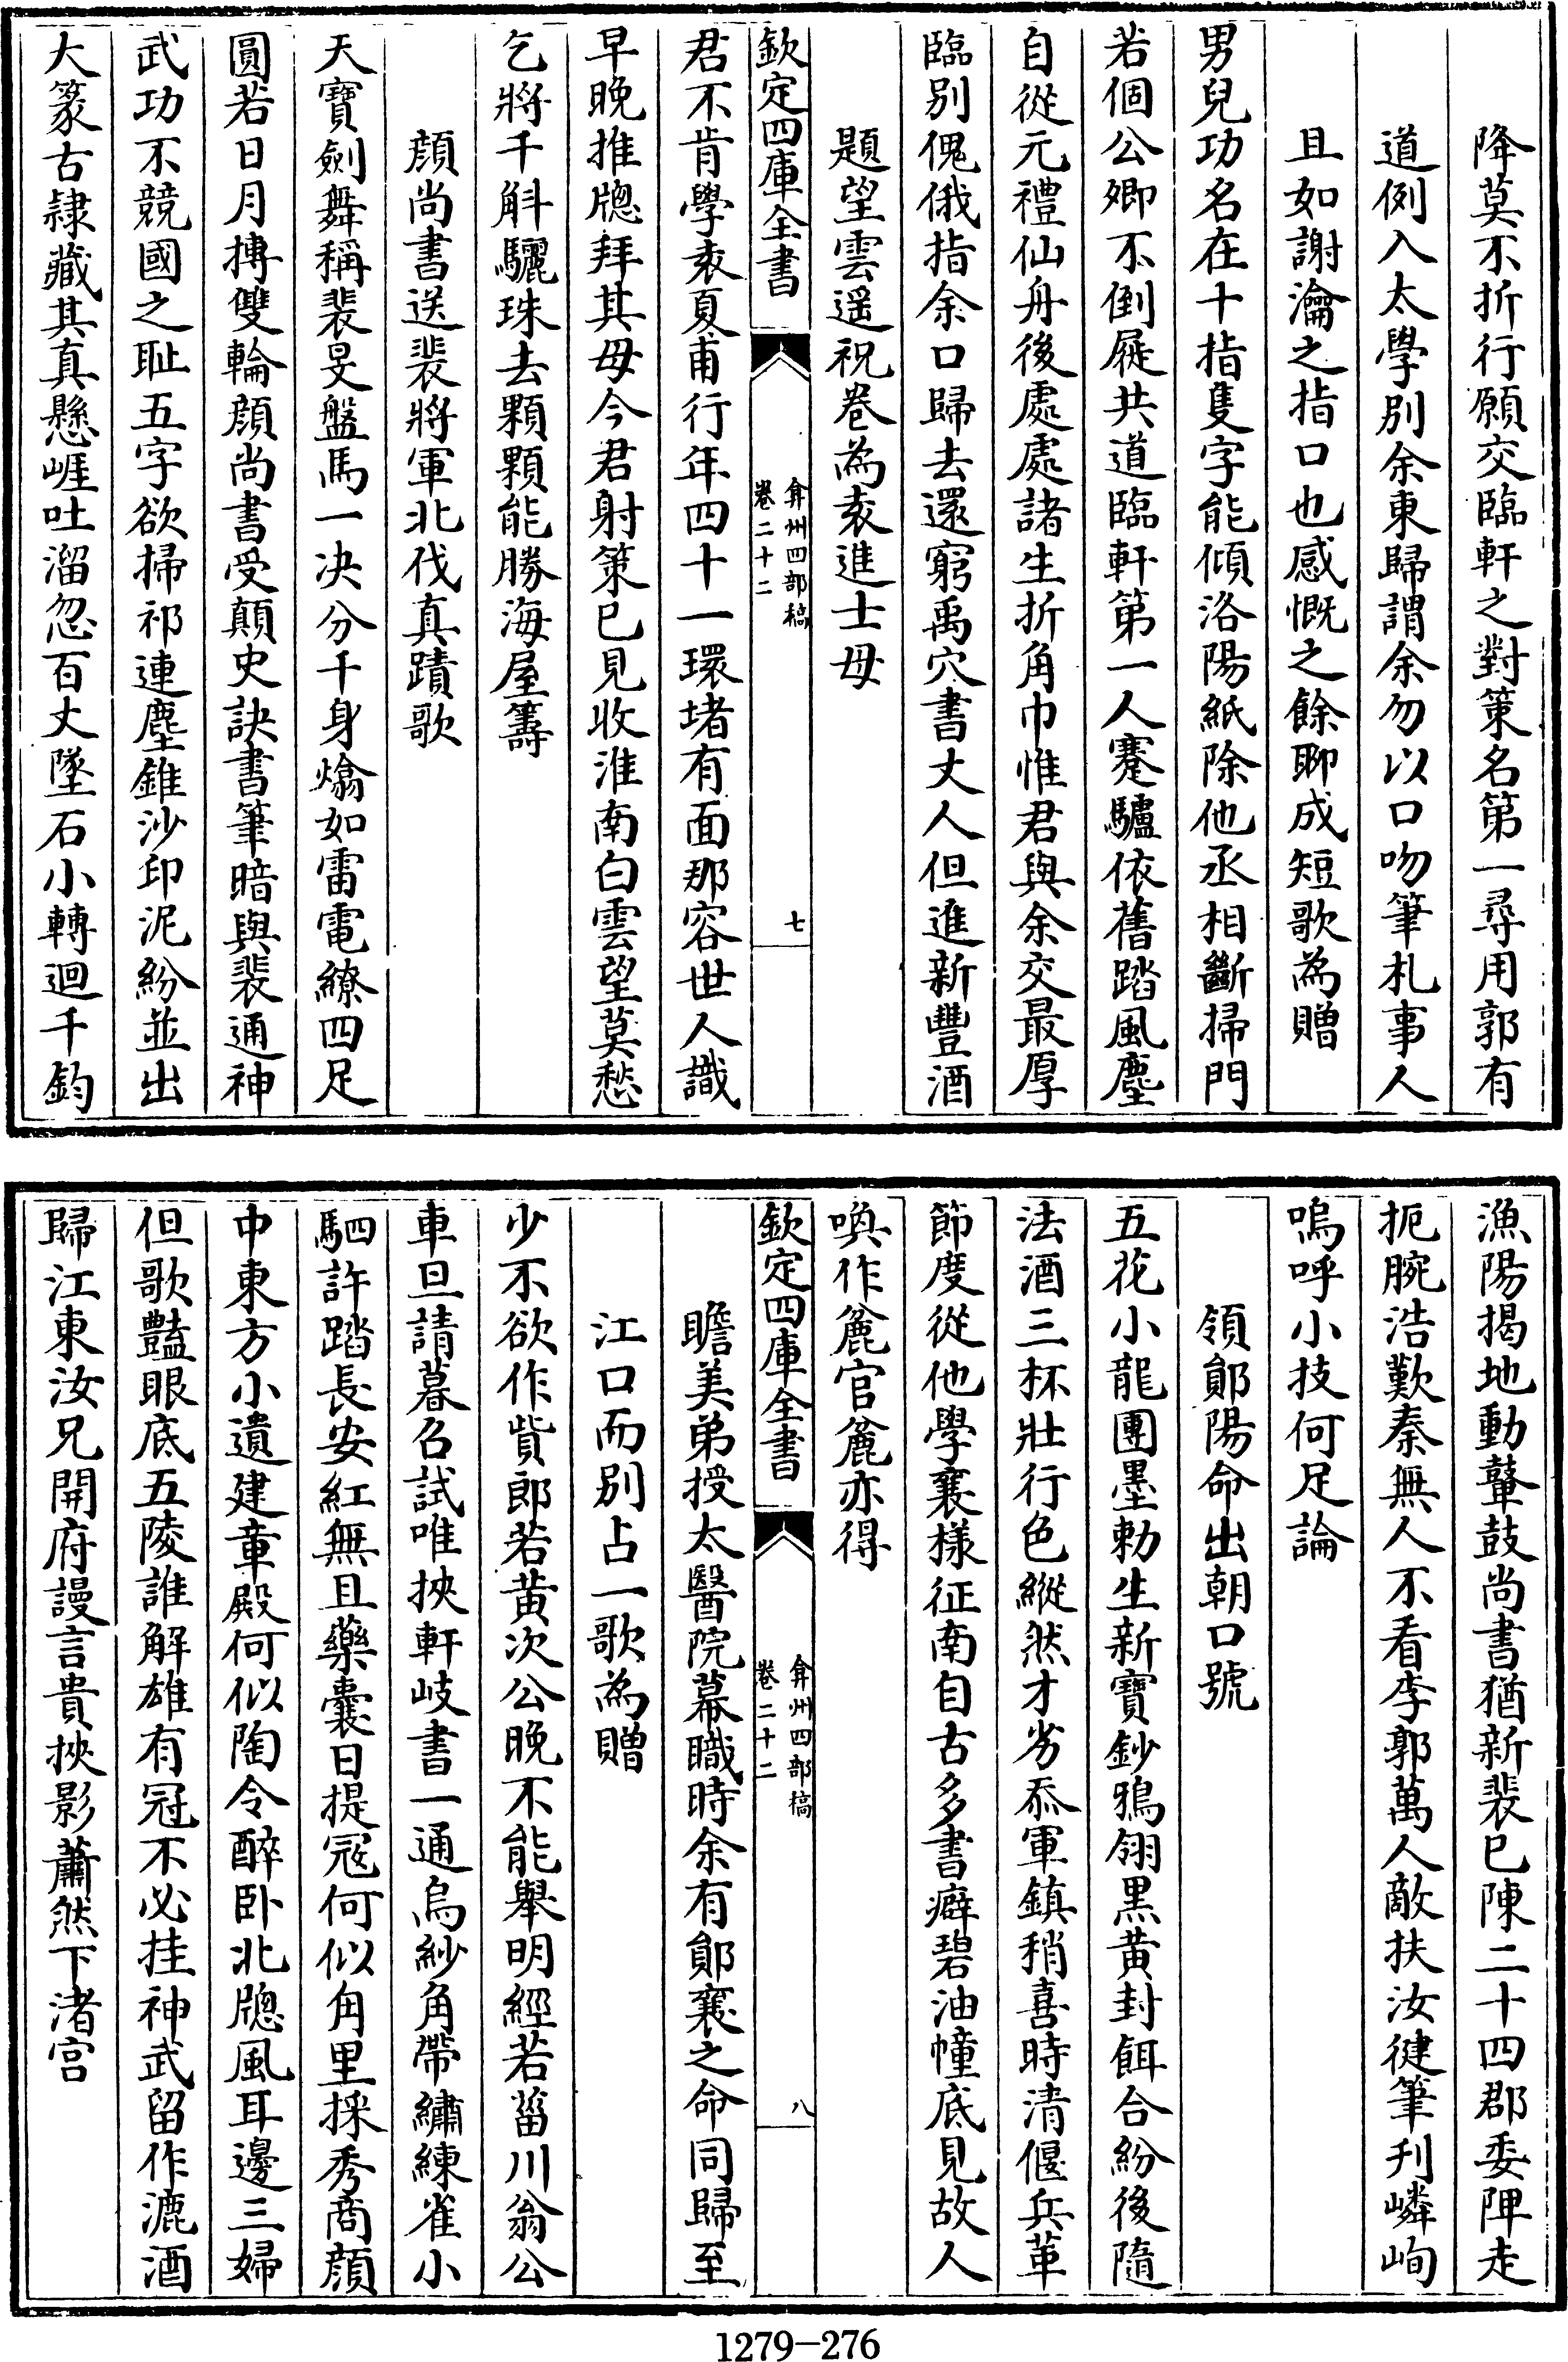 降莫不折行願交臨軒之對策名第一尋用郭有
道例入太學別余東歸謂余勿以口吻筆札事人
且如謝瀹之指口也感慨之餘聊成短歌為贈
男兒功名在十指隻字能傾洛陽紙除他丞相斷掃門
若個公卿不倒屣共道臨軒第一人蹇驢依舊踏風塵
自從元禮仙舟後處處諸生折角巾惟君與余交最厚
臨別傀俄指余口歸去還窮禹穴書丈人但進新豐酒
題望雲遥祝卷為袁進士母
欽定四庫全書
弇州四部稿
卷二十二
七
君不肯學袁夏甫行年四十一環堵有面那容世人識
早晚推牎拜其母今君射策已見收淮南白雲望莫愁
乞將千斛驪珠去顆顆能勝海屋籌
顔尚書送裴將軍北伐真蹟歌
天寶劍舞稱裴旻盤馬一决分千身熻如雷電繚四足
圓若日月摶雙輪顔尚書受顛史訣書筆暗與裴通神
武功不競國之耻五字欲掃祁連塵錐沙印泥紛並出
大篆古隷藏其真懸崕吐溜忽百丈墜石小轉迴千鈞
漁陽揭地動鼙鼓尚書猶新裴已陳二十四郡委陴走
扼腕浩歎秦無人不看李郭萬人敵扶汝徤筆刋嶙峋
嗚呼小技何足論
領鄖陽命出朝口號
五花小龍團墨勅生新寶鈔鴉翎黑黄封餌合紛後隨
法酒三杯壯行色縱然才劣忝軍鎮稍喜時清偃兵革
節度從他學襄樣征南自古多書癖碧油幢底見故人
喚作麄官麄亦得
欽定四庫全書
弇州四部稿
卷二十二
八
瞻美弟授太醫院幕職時余有鄖襄之命同歸至
江口而别占一歌為贈
少不欲作貲郎若黄次公晚不能舉明經若甾川翁公
車旦請暮召試唯挾軒岐書一通烏紗角帶繡練雀小
駟許踏長安紅無且藥囊日提冦何似甪里採秀商顔
中東方小遺建章殿何似陶令醉卧北牎風耳邊三婦
但歌豔眼底五陵誰解雄有冠不必挂神武留作漉酒
歸江東汝兄開府謾言貴挾影蕭然下渚宫
1279-276